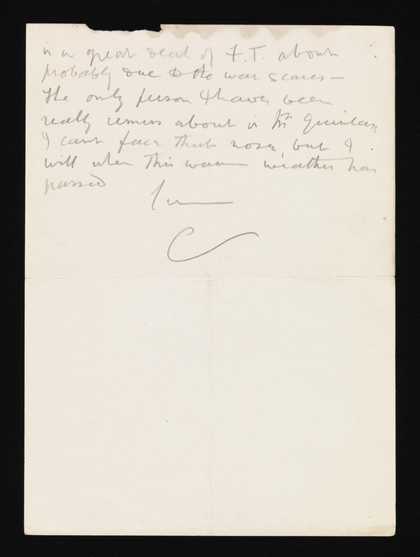 is a great deal of F.T. about
probably due to the war scares –
The only person I have been
really remiss about is Mrs Quinlan
I cant face that nose, but I
will when this warm weather has
passed
C